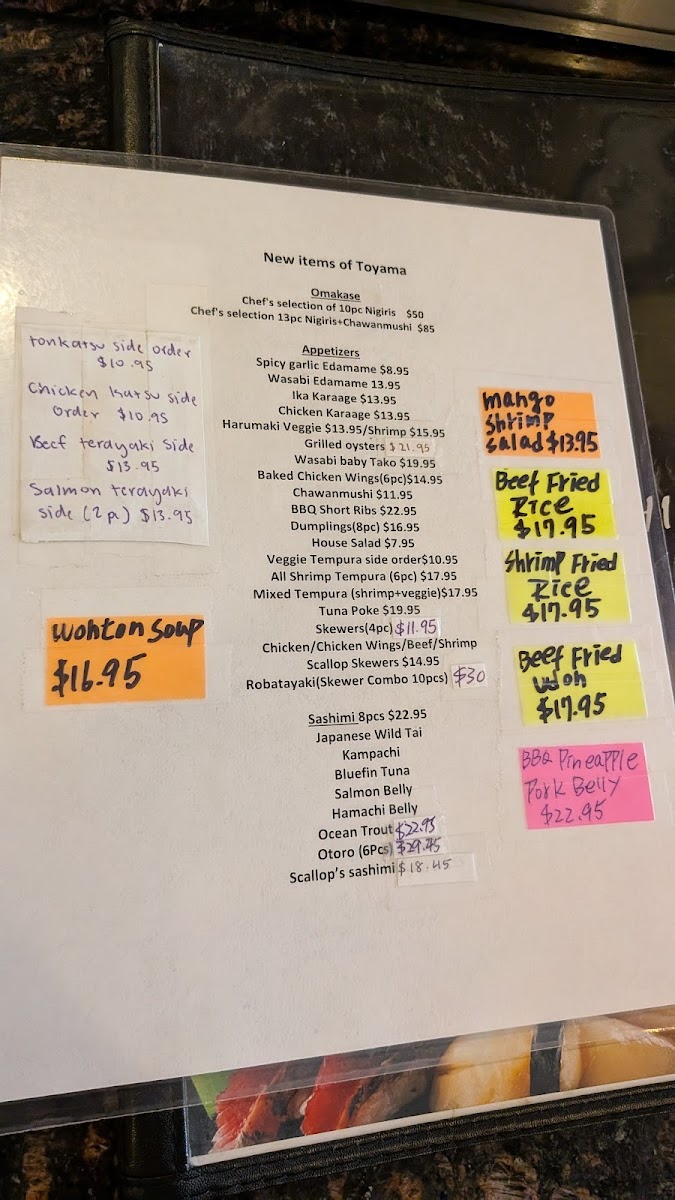 New items of Toyama
Omakase
Chef's selection of 10pc Nigiris $50
Chef's selection 13pc Nigiris+Chawanmushi $85
Appetizers
Spicy garlic Edamame $8.95
Wasabi Edamame 13.95
Ika Karaage $13.95
Chicken Karaage $13.95
Harumaki Veggie $13.95/Shrimp $15.95
Grilled oysters $21.95
Wasabi baby Tako $19.95
Baked Chicken Wings(6pc)$14.95
Chawanmushi $11.95
BBQ Short Ribs $22.95
Dumplings(8pc) $16.95
House Salad $7.95
Veggie Tempura side order$10.95
All Shrimp Tempura (6pc) $17.95
Mixed Tempura (shrimp+veggie)$17.95
Tuna Poke $19.95
Skewers(4pc) $11.95
Chicken/Chicken Wings/Beef/Shrimp
Scallop Skewers $14.95
Robatayaki(Skewer Combo 10pcs) $30
Sashimi 8pcs $22.95
Japanese Wild Tai
Kampachi
Bluefin Tuna
Salmon Belly
Hamachi Belly
Ocean Trout $22.95
Otoro (6Pcs) $29.45
Scallop's sashimi $18.45
tonkatsu side order
$10.95
Chicken katsu side
order $10.95
Beef terayaki side
$13.95
Salmon terayaki
side (2p) $13.95
Wonton Soup
$16.95
mango
Shrimp
Salad $13.95
Beef Fried
Rice
$17.95
Shrimp Fried
Rice
$17.95
Beef Fried
udon
$17.95
BBQ Pineapple
Pork Belly
$22.95